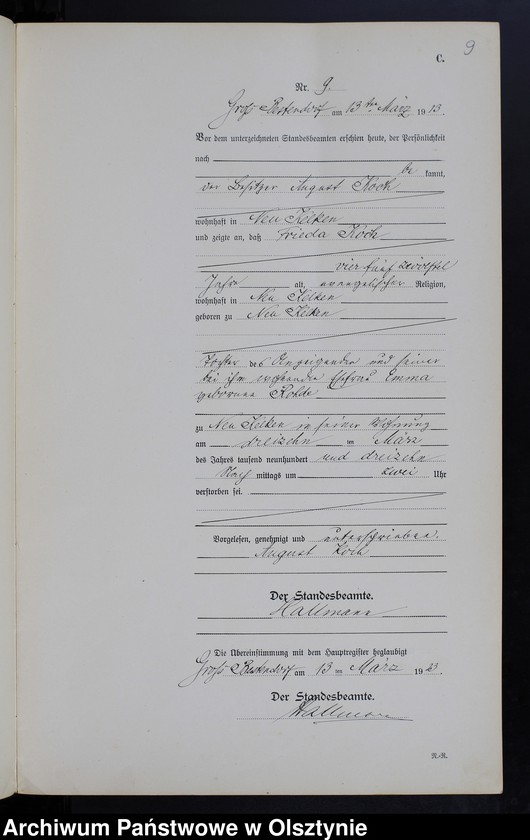 9
C.
Nr. 9.
Groß Bestendorf am 13ten März 1913.
Vor dem unterzeichneten Standesbeamten erschien heute, der Persönlichkeit
nach
be kannt,
der Besitzer August Koch
wohnhaft in Neu Kelken
und zeigte an, daß Frieda Koch
vier fünf zwölftel
Jahre alt, evangelischer Religion,
wohnhaft in Neu Kelken
geboren zu Neu Kelken
Tochter des Anzeigenden und seiner
bei ihm wohnenden Ehefrau Emma
geborenen Rohde
zu Neu Kelken in seiner Wohnung
am dreizehn im März
des Jahres tausend neunhundert und dreizehn
Nach mittags um zwei Uhr
verstorben sei.
Vorgelesen, genehmigt und unterschrieben.
August Koch
Der Standesbeamte.
Hallmann
Die Übereinstimmung mit dem Hauptregister beglaubigt
Groß Bestendorf am 13 im März 19
Der Standesbeamte.
Hallmann
N.-R.
Archiwum Państwowe w Olsztynie